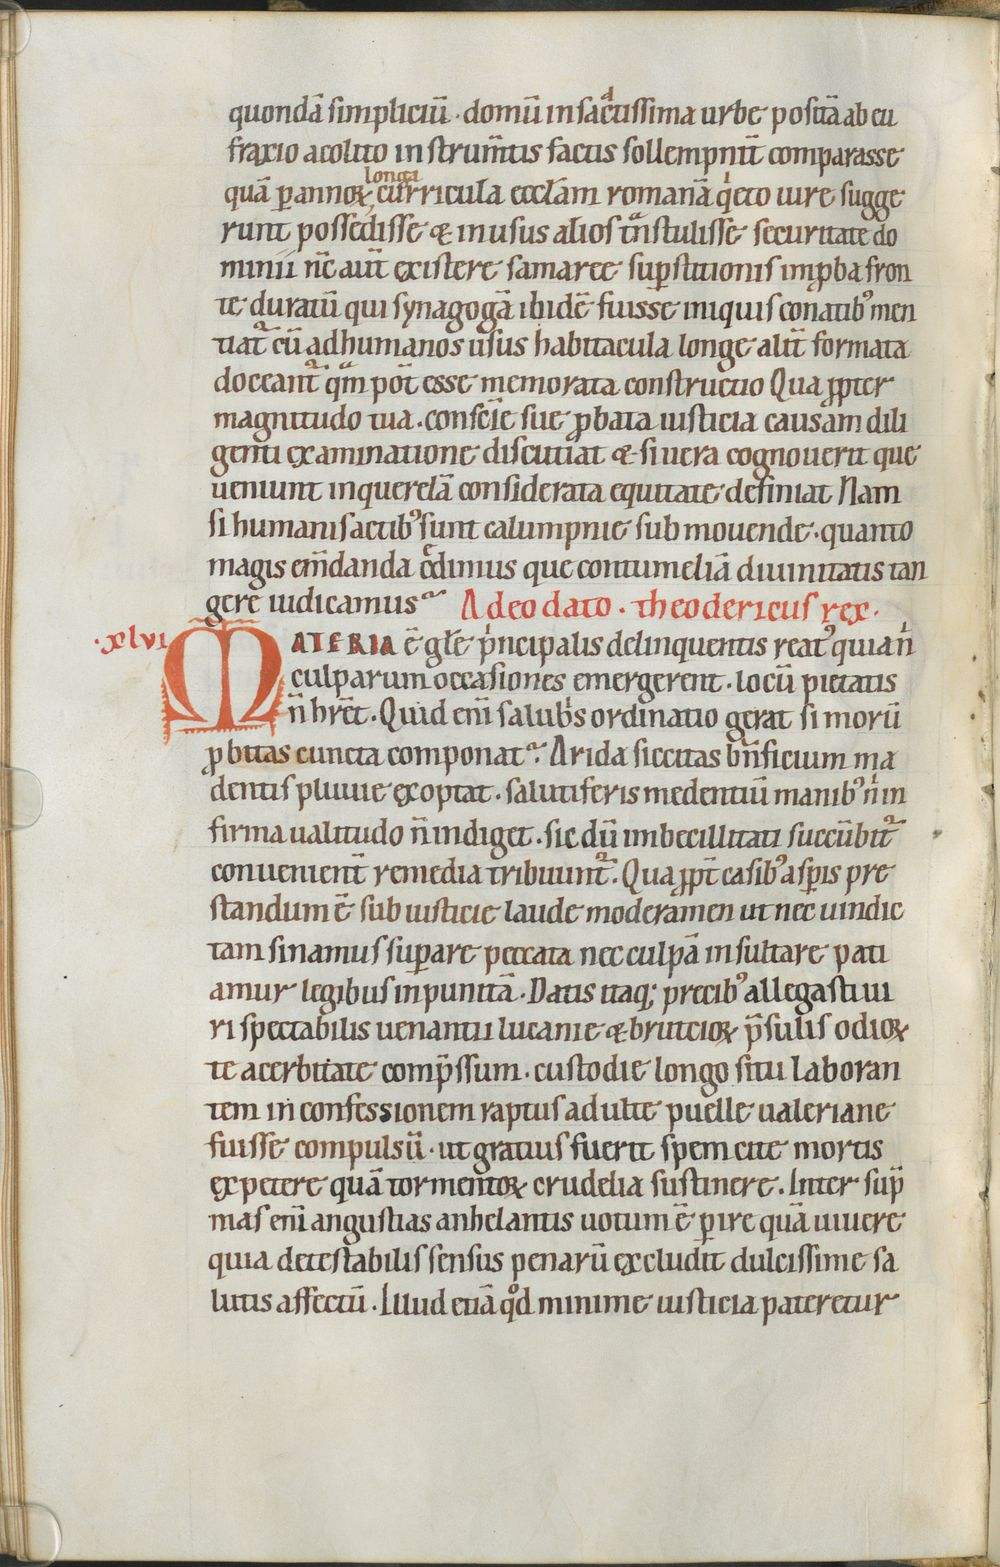 quondā simpliciū · domū in sac̄tissima urbe positā ab eu
fraxio acolito instrum̄tis factis sollempnit̄ comparasse
quā ꝑ annoꝝ longa curricula eccl̄am romanā qͥeto iure sugge
runt possedisse ⁊ in usus alios tͣnstulisse securitate do
minii nēc aut̄ existere samaree suꝑstitionis imꝓba fron
te duratū qui synagogā ibidē fuisse iniquis conatibꝰ men
tiat᷑ cū ad humanos usus habitacula longe alit̄ formata
doceant᷑ qͣm pot̄ esse memorata constructio Qua ꝓpter
magnitudo tua · consciē sue ꝓbata iusticia causam dili
genti examinatione discutiat ⁊ si uera cognouerit que
ueniunt in querelā considerata equitate definiat Nam
si humanis actibꝰ sunt calumpnie submouende · quanto
magis em̄danda c̄dimus que contumeliā diuinitatis tan
gere iudicamus Adeodato · theodericus rex ·
· xlvi MATERIA ē gl̄e pͥncipalis delinquentis reatꝰ quia nͥ
culparum occasiones emergerent · locū pietatis
n̄ hr̄et · Quid eni̅ salubͥs ordinatio gerat si morū
ꝓbitas cuncta componat Arida siccitas bn̄ficium ma
dentis pluuie exoptat · salutiferis medentiū manibꝰ nͥ in
firma ualitudo n̄ indiget · sic dū imbecillitati succūbit᷑
convenient̄ remedia tribuunt᷑ · Qua ꝓpt̄ casibꝰ asꝑis pre
standum ē sub iusticie laude moderamen ut nec uindic
tam sinamus suꝑare peccata nec culpā insultare pati
amur legibus inpunitā · Datis itaq; precibꝰ allegasti ui
ri spectabilis uenantii lucanie ⁊ brutcioꝝ p̄sulis odioꝝ
te acerbitate comp̄ssum · custodie longo situ laboran
tem in confessionem raptus adulte puelle ualeriane
fuisse compulsū · ut gratius fuerit spem cite mortis
expetere quā tormentoꝝ crudelia sustinere · Inter sup̄
mas eni̅ angustias anhelantis uotum ē ꝑire quā uiuere
quia detestabilis sensus penarū excludit dulcissime sa
lutis affectū · Illud etiā qͦd minime iusticia pateretur